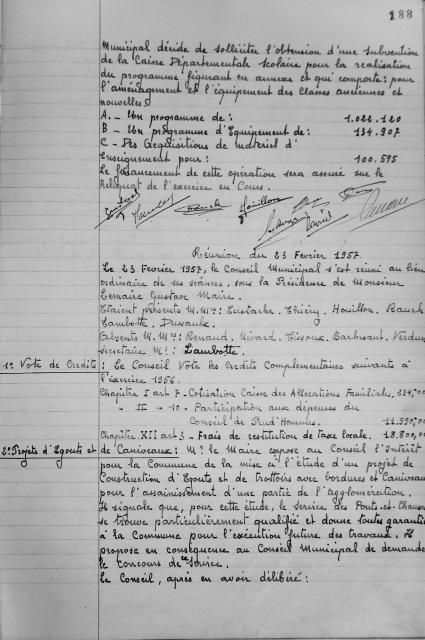 188
Municipal décide de solliciter l'obtension d'une subvention
de la Caisse Départementale Scolaire pour la réalisation
du programme figurant en annexes et qui comporte : pour
l'aménagement et l'équipement des classes anciennes et
nouvelles.
A. - Un programme de : 1.022.120
B - Un programme d'Equipement de : 134.907
C - Des Acquisitions de matériel d'
Enseignement pour : 100.595
Le financement de cette opération sera assuré sur le
Reliquat de l'exercice en Cours.
Houillon
Réunion du 23 Fevrier 1957.
Le 23 Fevrier 1957, le Conseil Municipal s'est réuni au lieu
ordinaire de ses séances, sous la Présidence de Monsieur
Lemaire Gustave Maire.
Etaient présents M.M.rs : Eustache. Thiéry. Houillon. Bauch
Lambotte.
Absents M.M.rs : Renaud. Tissoux. Barbesant. Verdun
Secrétaire M.r : Lambotte.
1° Vote de Credits : Le Conseil Vote les Credits Complementaires suivants à
l'exercice 1956.
Chapitre I art 7 - Cotisation Caisse des Allocations Familiales.
" II " 10 - Participation aux dépenses du
Conseil de Prud'Hommes. 11.990,00
Chapitre XII art 3 - Frais de restitution de taxe locale. 18.800,00
2° Projets d'Egouts et de Caniveaux : M.r le Maire expose au Conseil l'Intérêt
pour la Commune de la mise à l'étude d'un projet de
Construction d'Egouts et de trottoirs avec bordures et Caniveaux
pour l'assainissement d'une partie de l'agglomération.
Il signale que, pour cette étude, le Service des Ponts-et-Chaussé
se trouve particulièrement qualifié et donne toute garantie
à la Commune pour l'exécution future des travaux. Il
propose en conséquence au Conseil Municipal de demande
le Concours de ce Service.
Le Conseil, après en avoir délibéré :